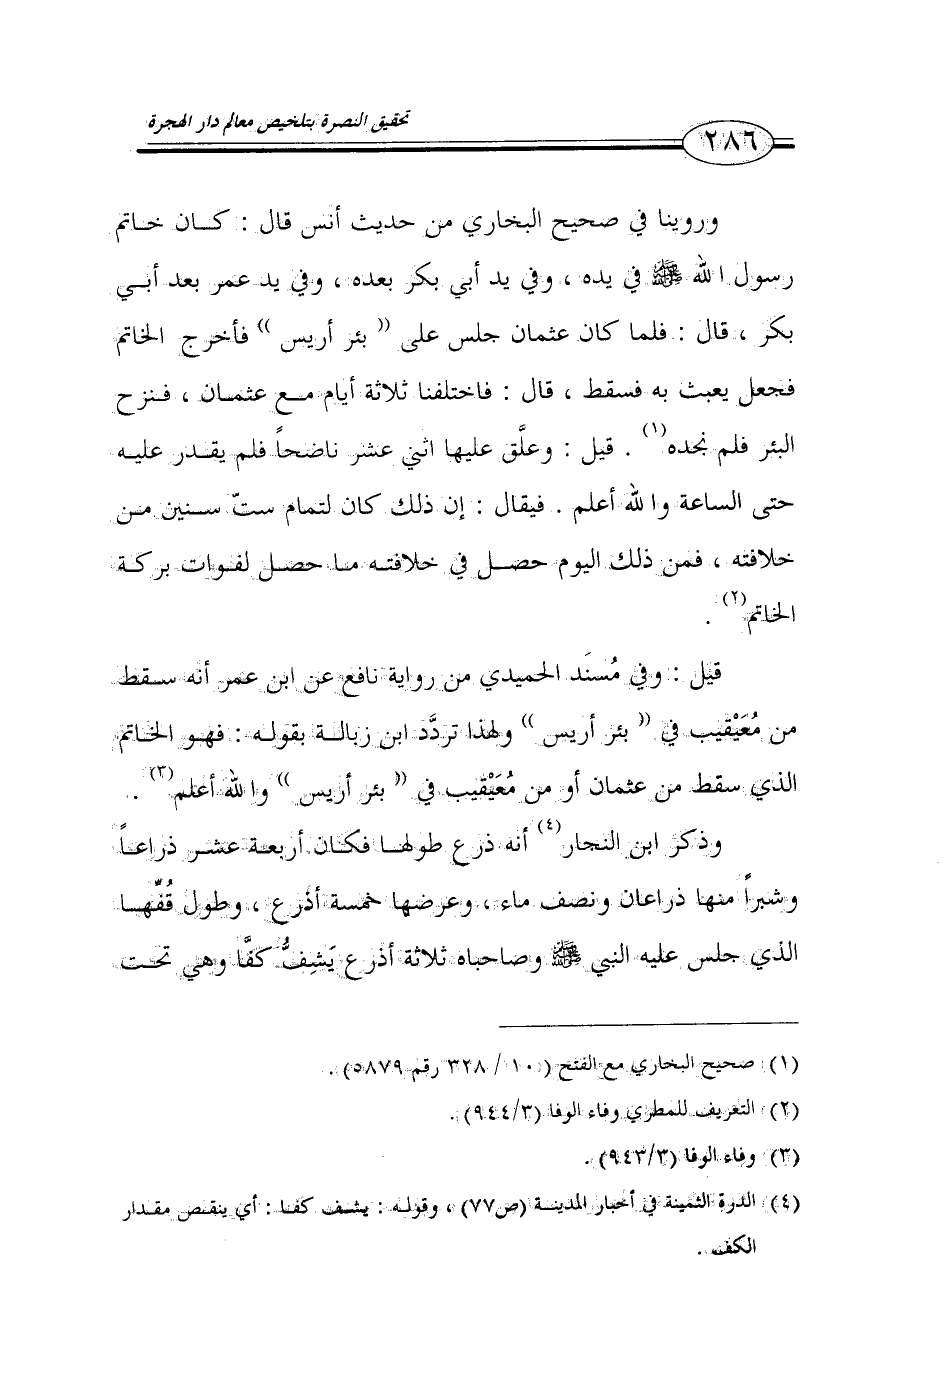 تحقيق النصرة بتلخيص معالم دار الهجرة
٢٨٦
وروينا في صحيح البخاري من حديث أنس قال : كان خاتم
رسول الله ﷺ في يده ، وفي يد أبي بكر بعده ، وفي يد عمر بعد أبي
بكر ، قال : فلما كان عثمان جلس على (( بئر أريس )) فأخرج الخاتم
فجعل يعبث به فسقط ، قال : فاختلفنا ثلاثة أيام مع عثمان ، فنزح
البئر فلم نجده(١) . قيل : وعلَّق عليها اثني عشر ناضحاً فلم يقدر عليه
حتى الساعة والله أعلم . فيقال : إن ذلك كان لتمام ستّ سنين من
خلافته ، فمن ذلك اليوم حصل في خلافته ما حصل لفوات بركة
الخاتم(٢) .
قيل : وفي مُسنَد الحميدي من رواية نافع عن ابن عمر أنه سقط
من مُعَيْقيب في (( بئر أريس )) ولهذا تردَّد ابن زبالة بقوله : فهو الخاتم
الذي سقط من عثمان أو من مُعَيْقيب في (( بئر أريس )) والله أعلم(٣) .
وذكر ابن النجار(٤) أنه ذرع طولها فكان أربعة عشر ذراعاً
وشبراً منها ذراعان ونصف ماء ، وعرضها خمسة أذرع ، وطول قُفّها
الذي جلس عليه النبي ﷺ وصاحباه ثلاثة أذرع يَشِفُّ كفَّا وهي تحت
(١) صحيح البخاري مع الفتح (١٠/ ٣٢٨ رقم ٥٨٧٩) .
(٢) التعريف للمطري وفاء الوفا (٩٤٤/٣) .
(٣) وفاء الوفا (٩٤٣/٣) .
(٤) الدرة الثمينة في أخبار المدينة (ص٧٧) ، وقوله : يشف كفا : أي ينقص مقدار
الكف .